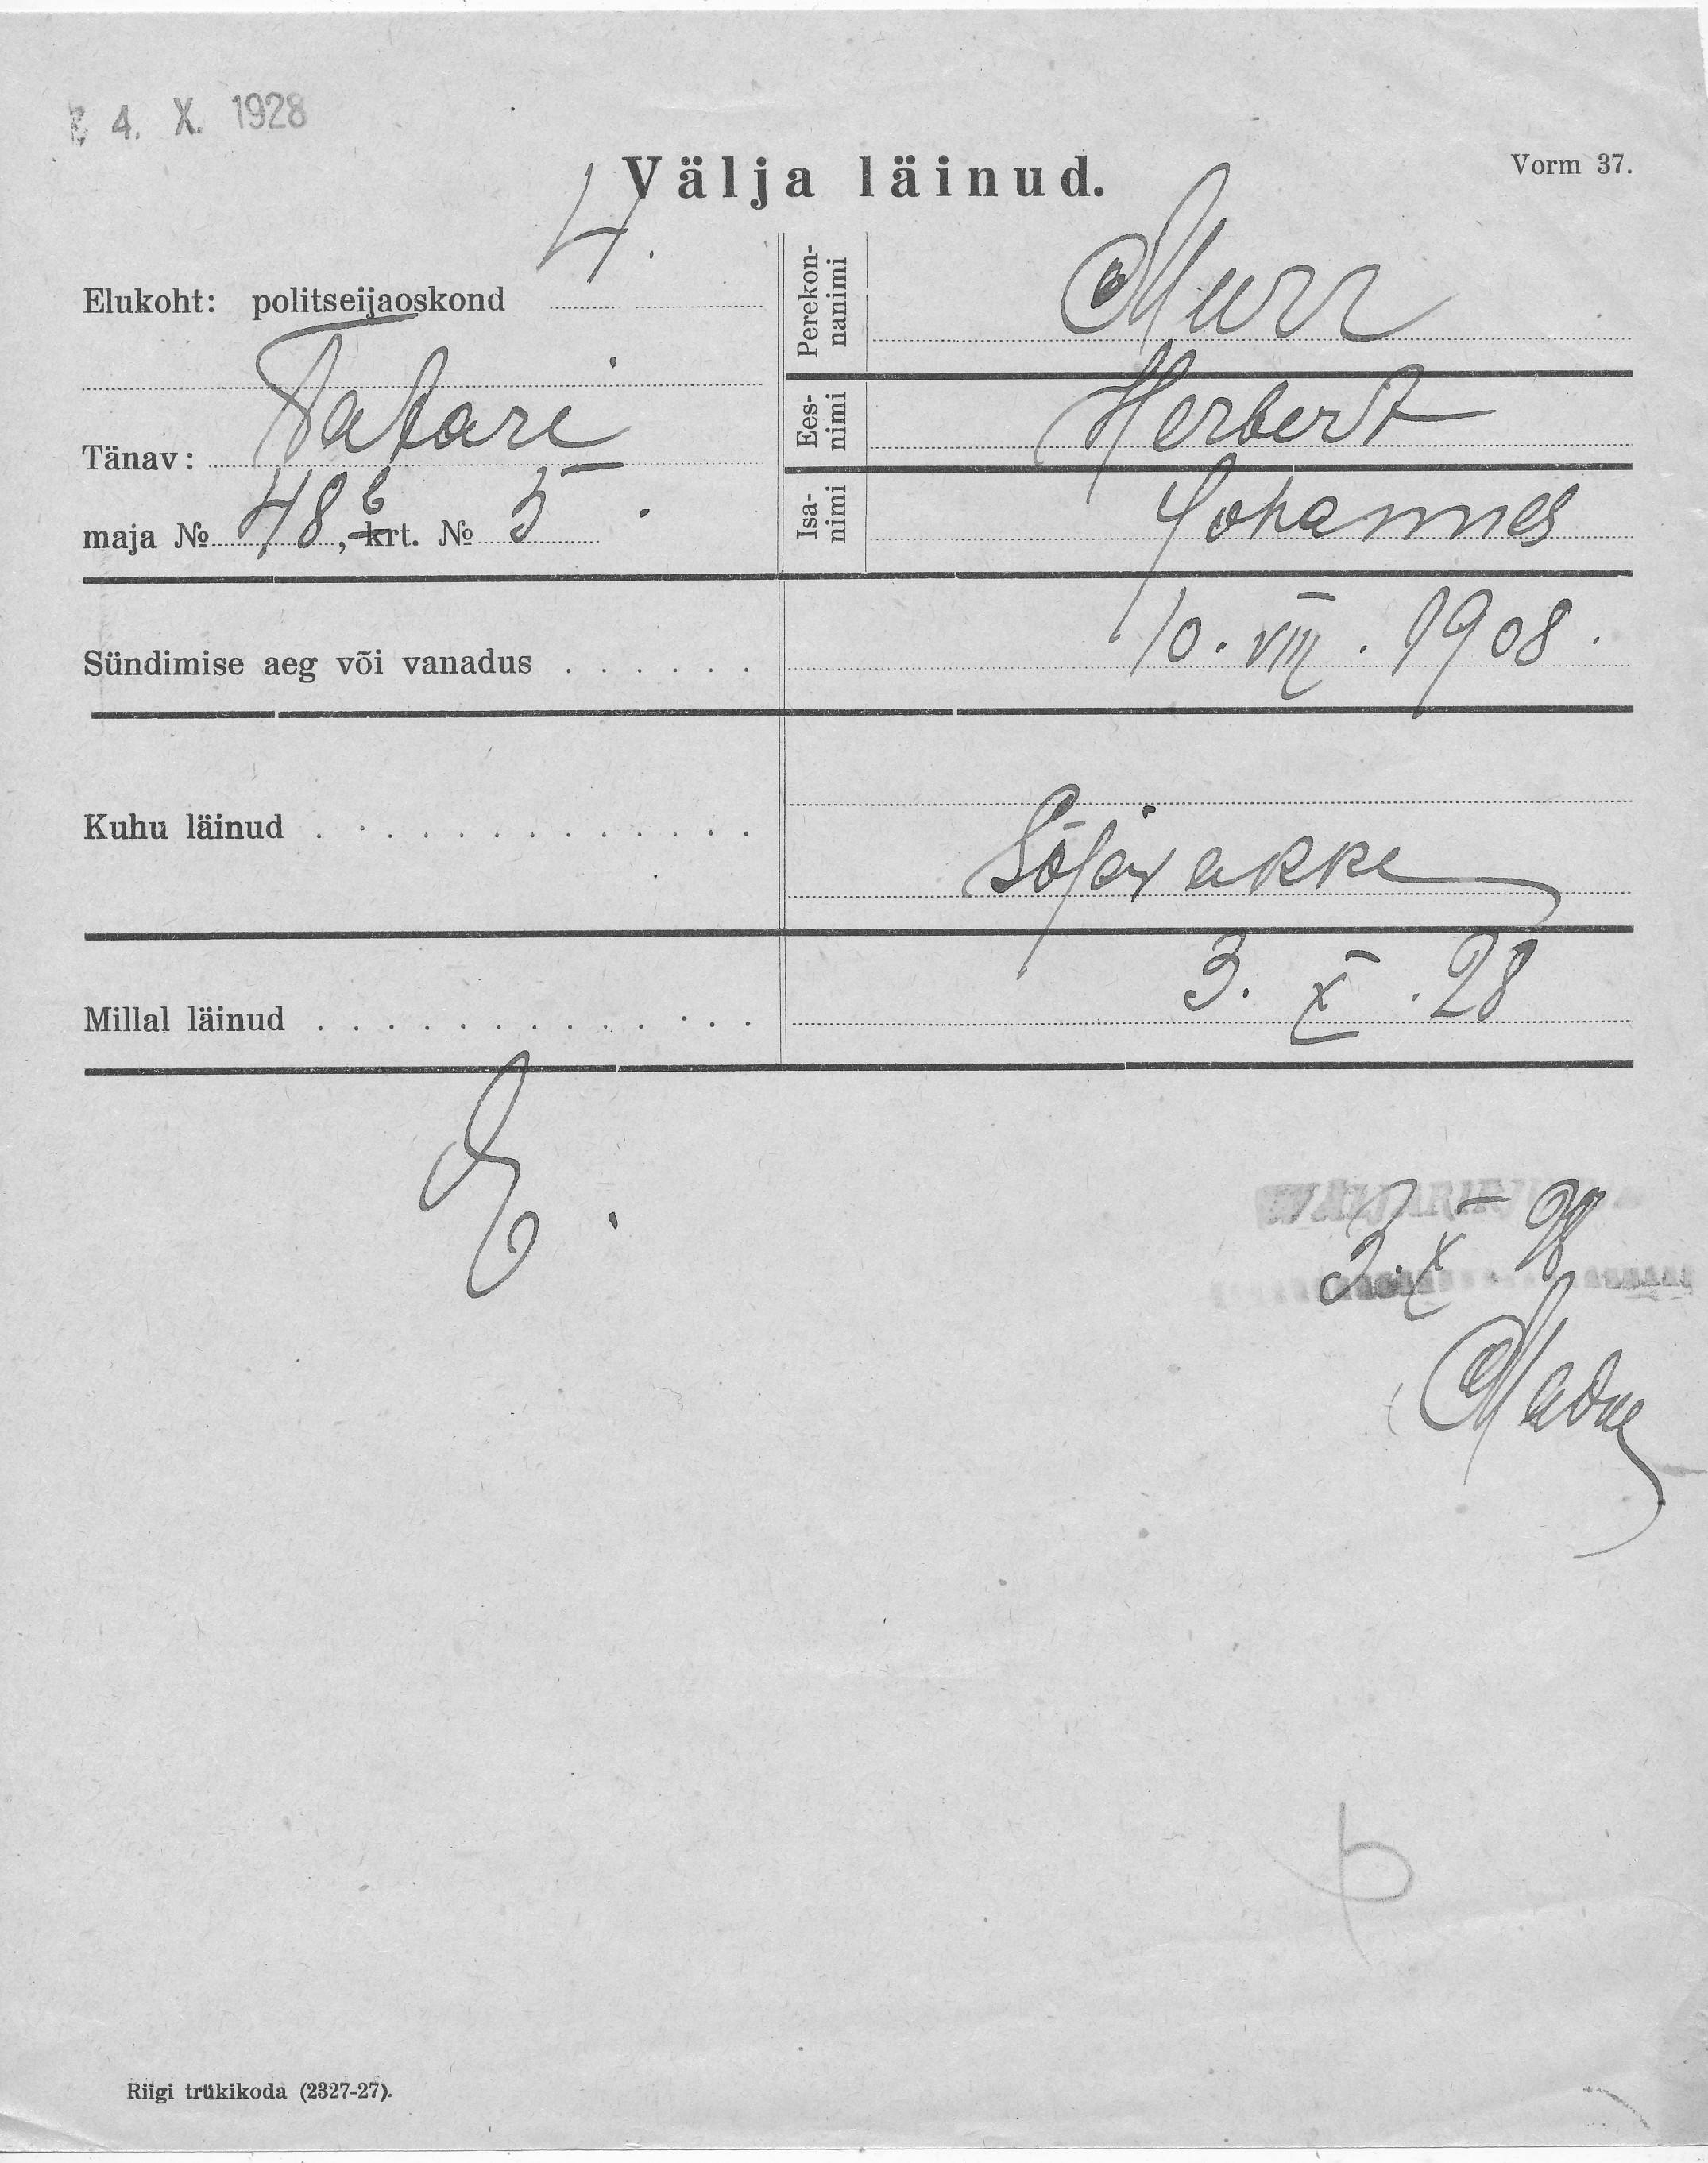 4. X. 1928
Välja läinud.
Vorm 37.
Elukoht: politseijaoskond 4.
Tänav: Tatari
maja № 48 b, krt. № 5.
Perekon-
nanimi
Murr
Ees-
nimi
Herbert
Isa-
nimi
Johannes
Sündimise aeg või vanadus . . . . . . 10. VIII. 1908.
Kuhu läinud . . . . . . . . . . . . . Sõjaväkke
Millal läinud . . . . . . . . . . . . . 3. X. 28
3. X 28
Riigi trükikoda (2327-27).